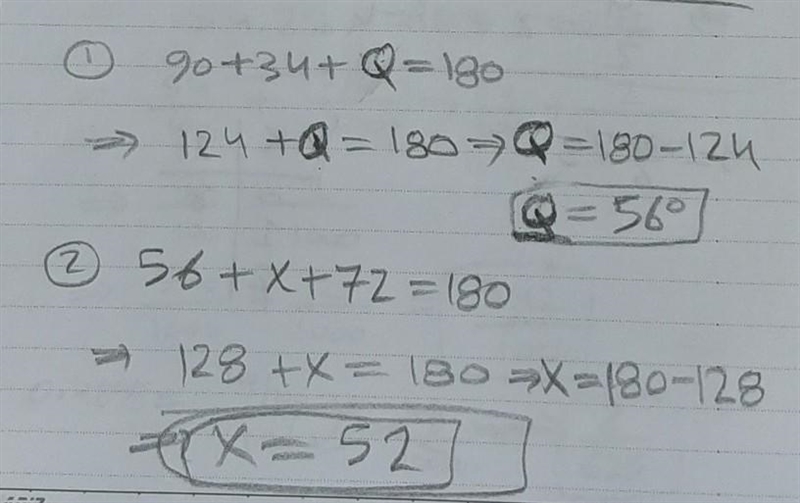 ① 90+34+Q=180
⇒ 124+Q=180⇒Q=180-124
Q=56°
② 56+x+72=180
⇒ 128+x=180⇒x=180-128
⇒ x=52